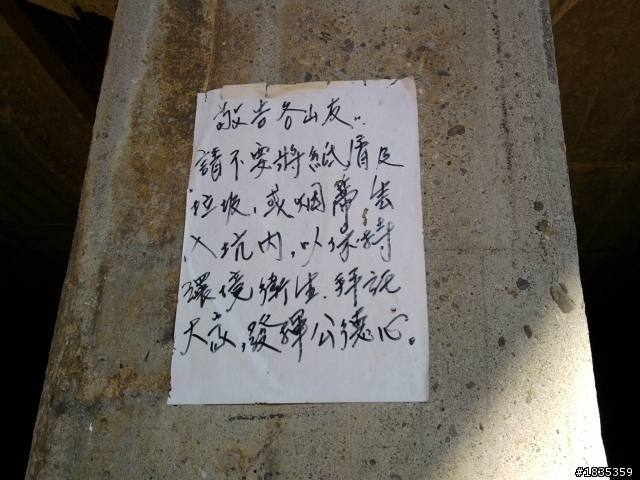 敬告各山友：
請不要將紙屑及
垃圾，或烟蒂丢
入坑內，以保持
環境衛生．拜託
大家，發揮公德心。
#1835359